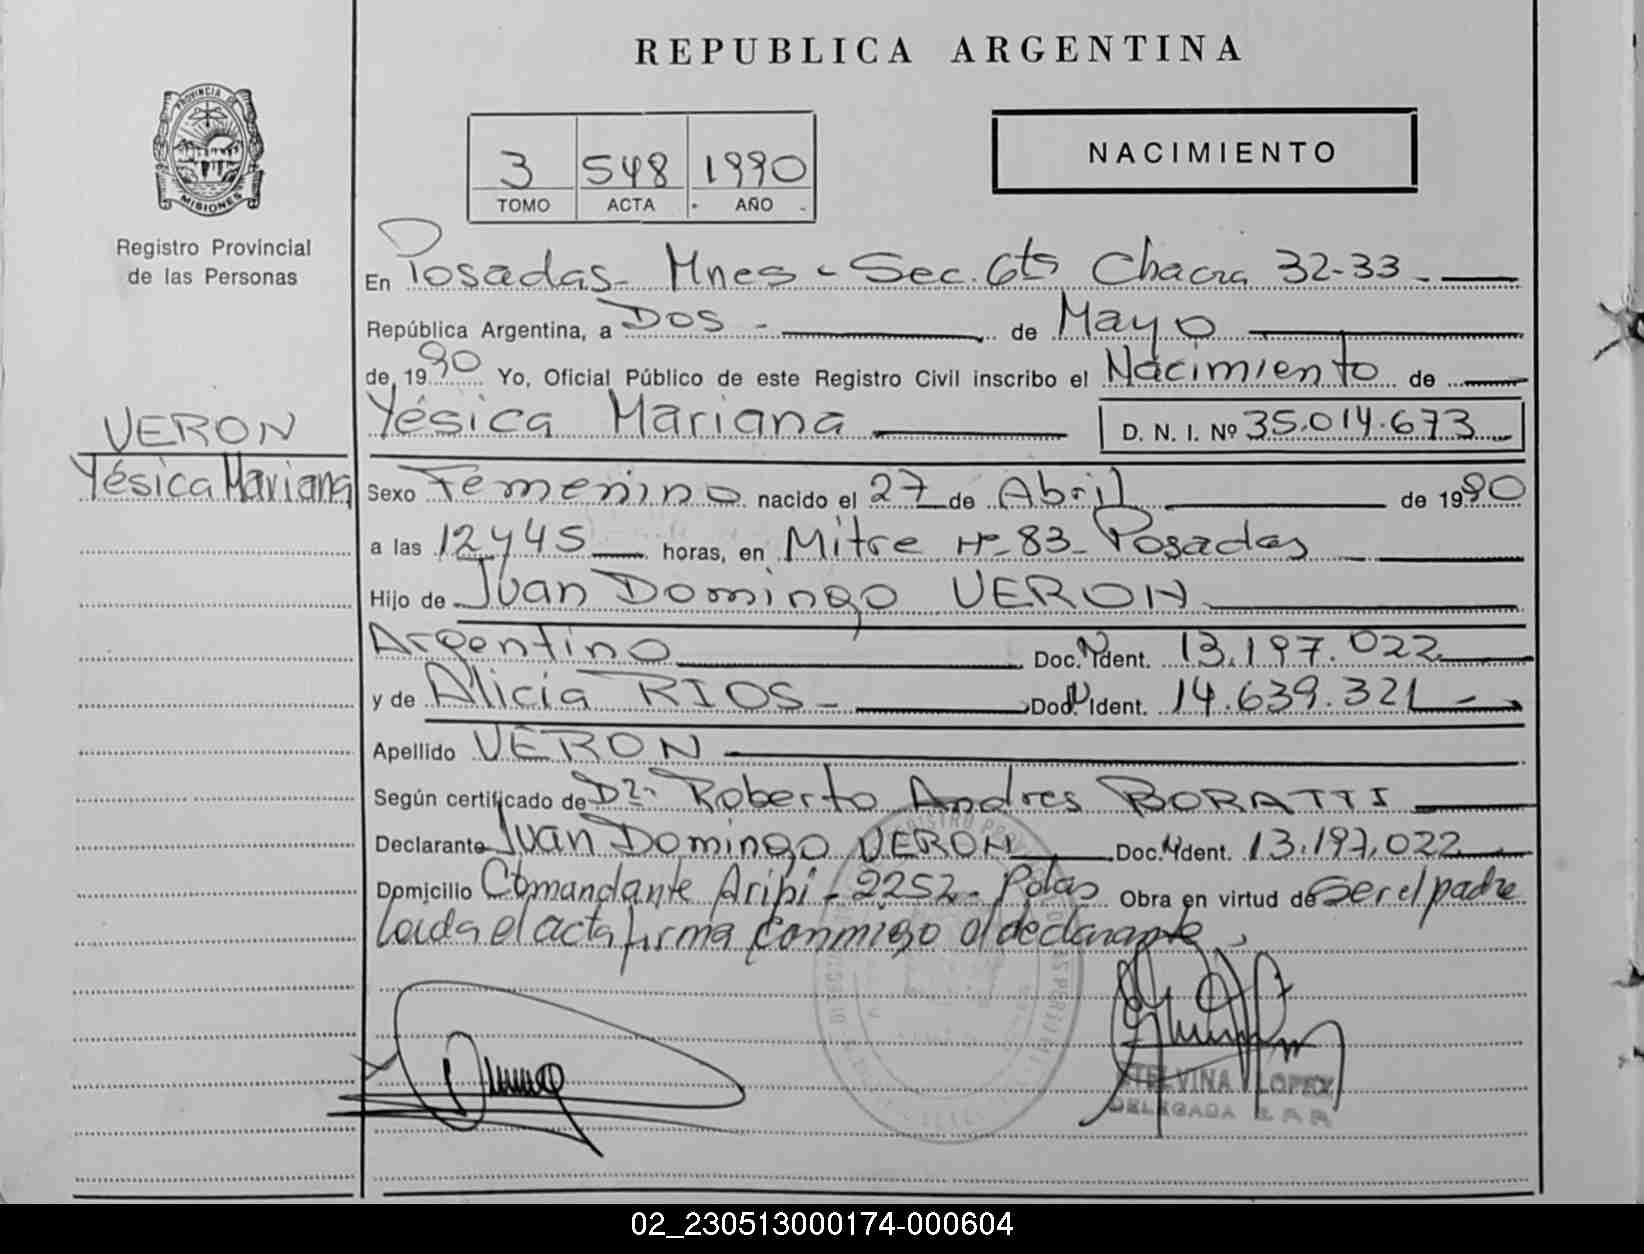 REPUBLICA ARGENTINA
PROVINCIA DE
MISIONES
Registro Provincial
de las Personas
3 548 1990
TOMO ACTA AÑO
NACIMIENTO
En Posadas - Mnes - Sec. 6ta Chacra 32-33
República Argentina, a Dos - de Mayo
de 1990 Yo, Oficial Público de este Registro Civil inscribo el Nacimiento de
Yésica Mariana D. N. I. Nº 35.014.673
VERON
Yésica Mariana
Sexo Femenino nacido el 27 de Abril de 1990
a las 12 y 45 horas, en Mitre Nº 83 - Posadas
Hijo de Juan Domingo VERON
Argentino Doc. N Ident. 13.197.022
y de Alicia RIOS - Doc. N Ident. 14.639.321
Apellido VERON
Según certificado de Dr. Roberto Andres BORATTI
Declarante Juan Domingo VERON Doc. N Ident. 13.197.022
Domicilio Comandante - 2252 - Pdas Obra en virtud de ser el padre
Leida el acta firma conmigo el declarante
ETELVINA LOPEZ
DELEGADA
02_230513000174-000604